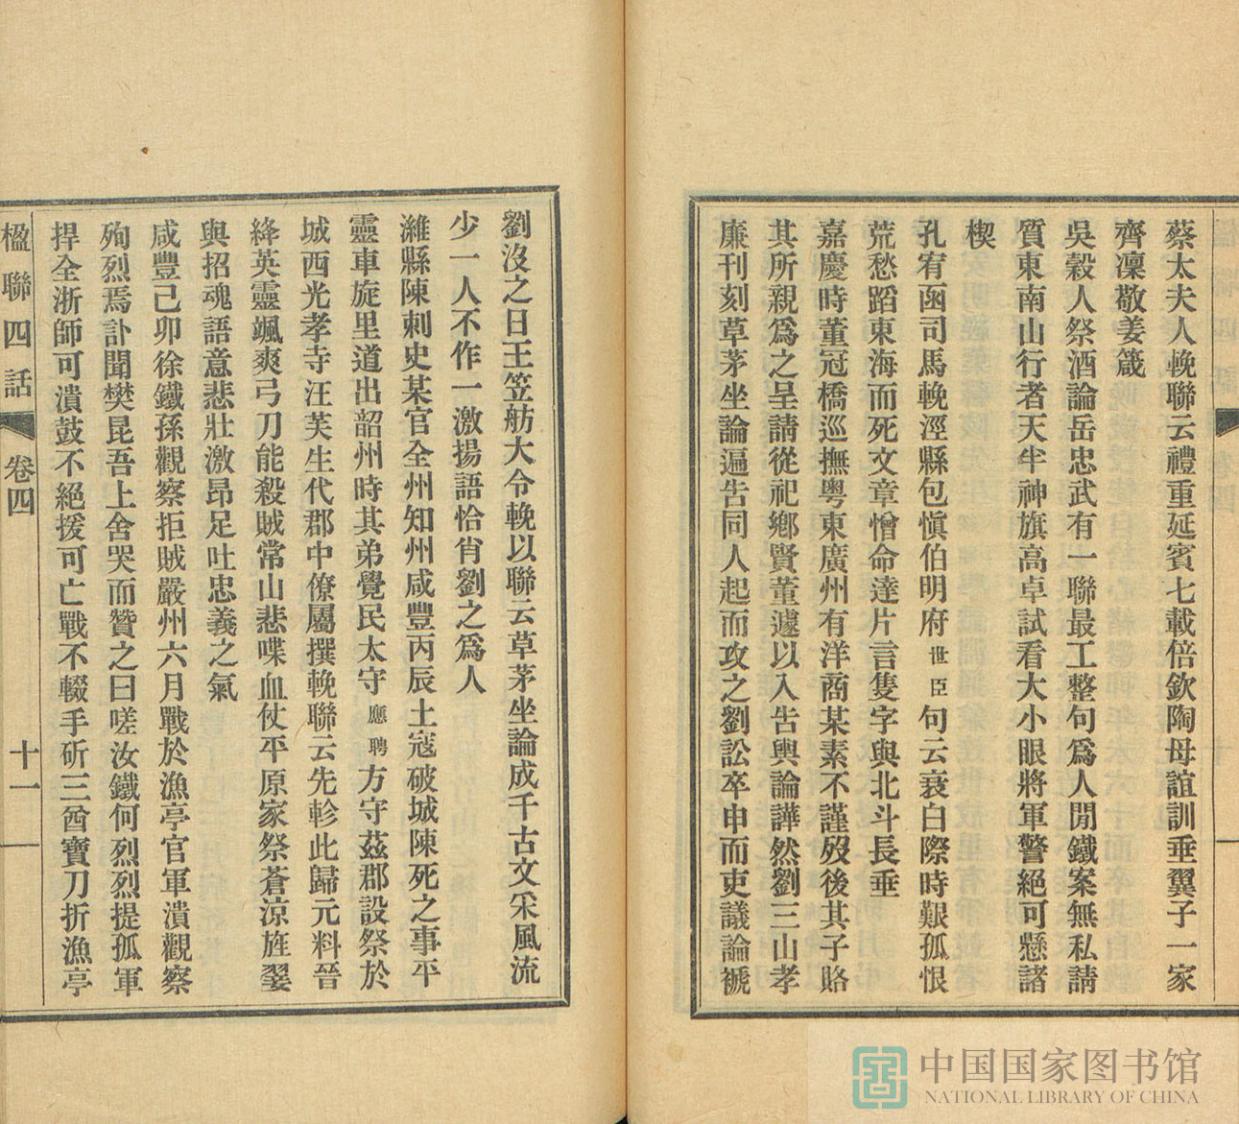 蔡太夫人輓聯云禮重延賓七載倍欽陶母誼訓垂翼子一家
齊凜敬姜箴
吳穀人祭酒論岳忠武有一聯最工整句爲人閒鐵案無私請
質東南山行者天半神旗高卓試看大小眼將軍警絕可懸諸
楔
孔宥函司馬輓涇縣包慎伯明府世臣句云衰白際時艱孤恨
荒愁蹈東海而死文章憎命達片言隻字與北斗長垂
嘉慶時董冠橋巡撫粵東廣州有洋商某素不謹歿後其子賂
其所親爲之呈請從祀鄉賢董遽以入告輿論譁然劉三山孝
廉刊刻草茅坐論遍告同人起而攻之劉訟卒申而吏議論褫
劉沒之日王笠舫大令輓以聯云草茅坐論成千古文采風流
少一人不作一激揚語恰肖劉之爲人
濰縣陳刺史某官全州知州咸豐丙辰土寇破城陳死之事平
靈車旋里道出韶州時其弟覺民太守應聘方守茲郡設祭於
城西光孝寺汪芙生代郡中僚屬撰輓聯云先軫此歸元料晉
絳英靈颯爽弓刀能殺賊常山悲喋血仗平原家祭蒼涼旌翣
與招魂語意悲壯激昂足吐忠義之氣
咸豐己卯徐鐵孫觀察拒賊嚴州六月戰於漁亭官軍潰觀察
殉烈焉訃聞樊昆吾上舍哭而贊之曰嗟汝鐵何烈烈提孤軍
捍全浙師可潰鼓不絕援可亡戰不輟手斫三酋寶刀折漁亭
楹聯四話 卷四 十一
中国国家图书馆
NATIONAL LIBRARY OF CHINA